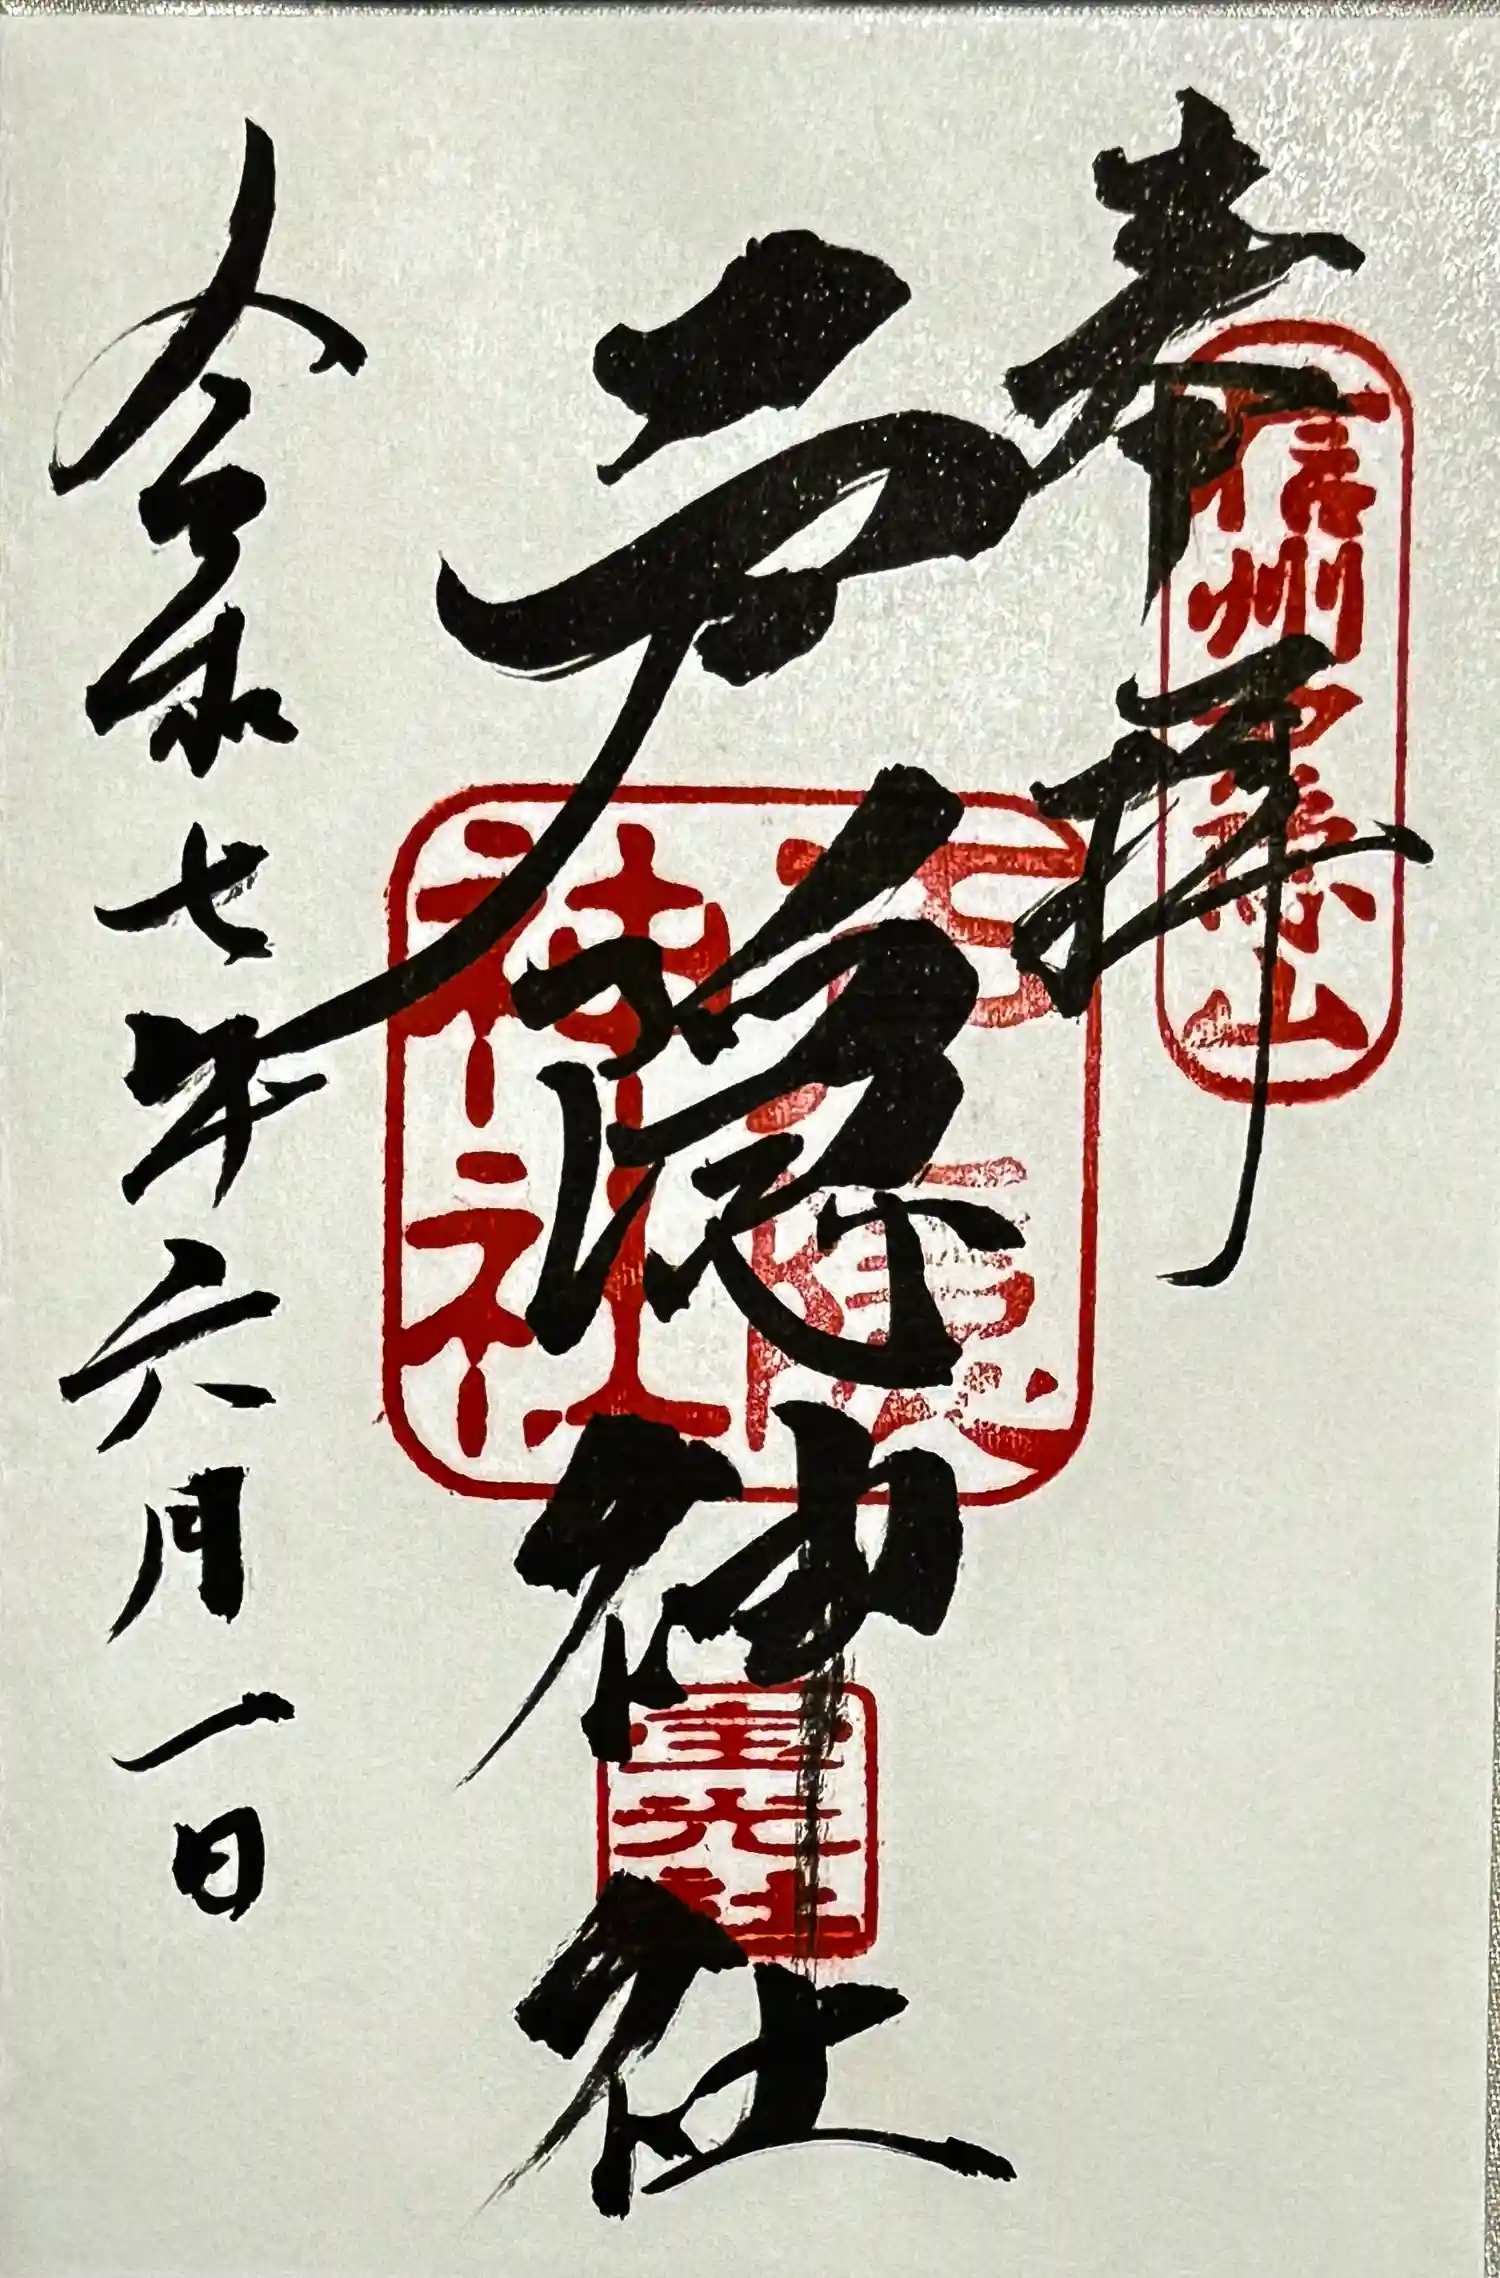 奉拝
信州戸隠山
戸隠神社
戸隠
神社
宝光社
令和七年六月一日